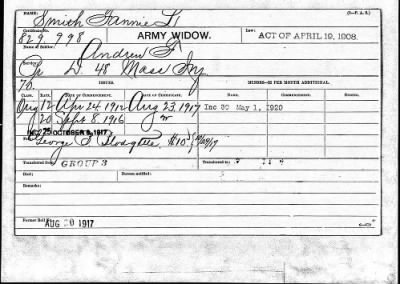 NAME: Smith Fannie L
(3—F. A. S.)
Certificate No. 829,998
ARMY WIDOW.
Law: ACT OF APRIL 19, 1908.
Name of Soldier: Andrew F
Service: D. 48 Mass Inf
ISSUES.
MINORS—$2 PER MONTH ADDITIONAL.
CLASS. RATE. DATE OF COMMENCEMENT. DATE OF CERTIFICATE.
Orig 12 Apr 24 1912 Aug 23, 1917
Inc 30 May 1, 1920
20 Sept 8, 1916
25 OCTOBER 6, 1917
George $10
Transferred from GROUP 3
Transferred to
Died:
Bureau notified:
Remarks:
Former Roll No.
AUG 30 1917